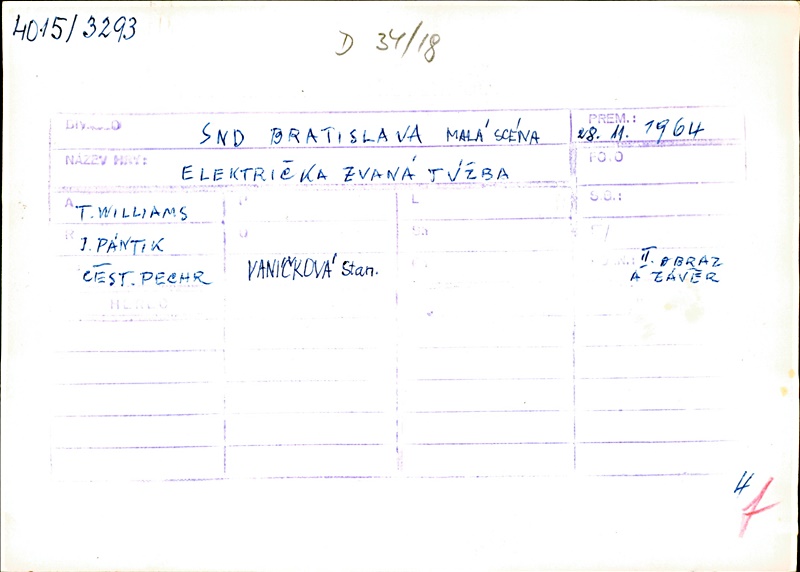 4015/3293
D 34/18
DIVADLO SND BRATISLAVA MALÁ SCÉNA PREM.: 28. 11. 1964
NÁZEV HRY: ELEKTRIČKA ZVANÁ TÚŽBA
A T. WILLIAMS
R J. PÁNTIK
ČEST. PECHR VANÍČKOVÁ Stan. II. OBRAZ
A ZÁVĚR
4